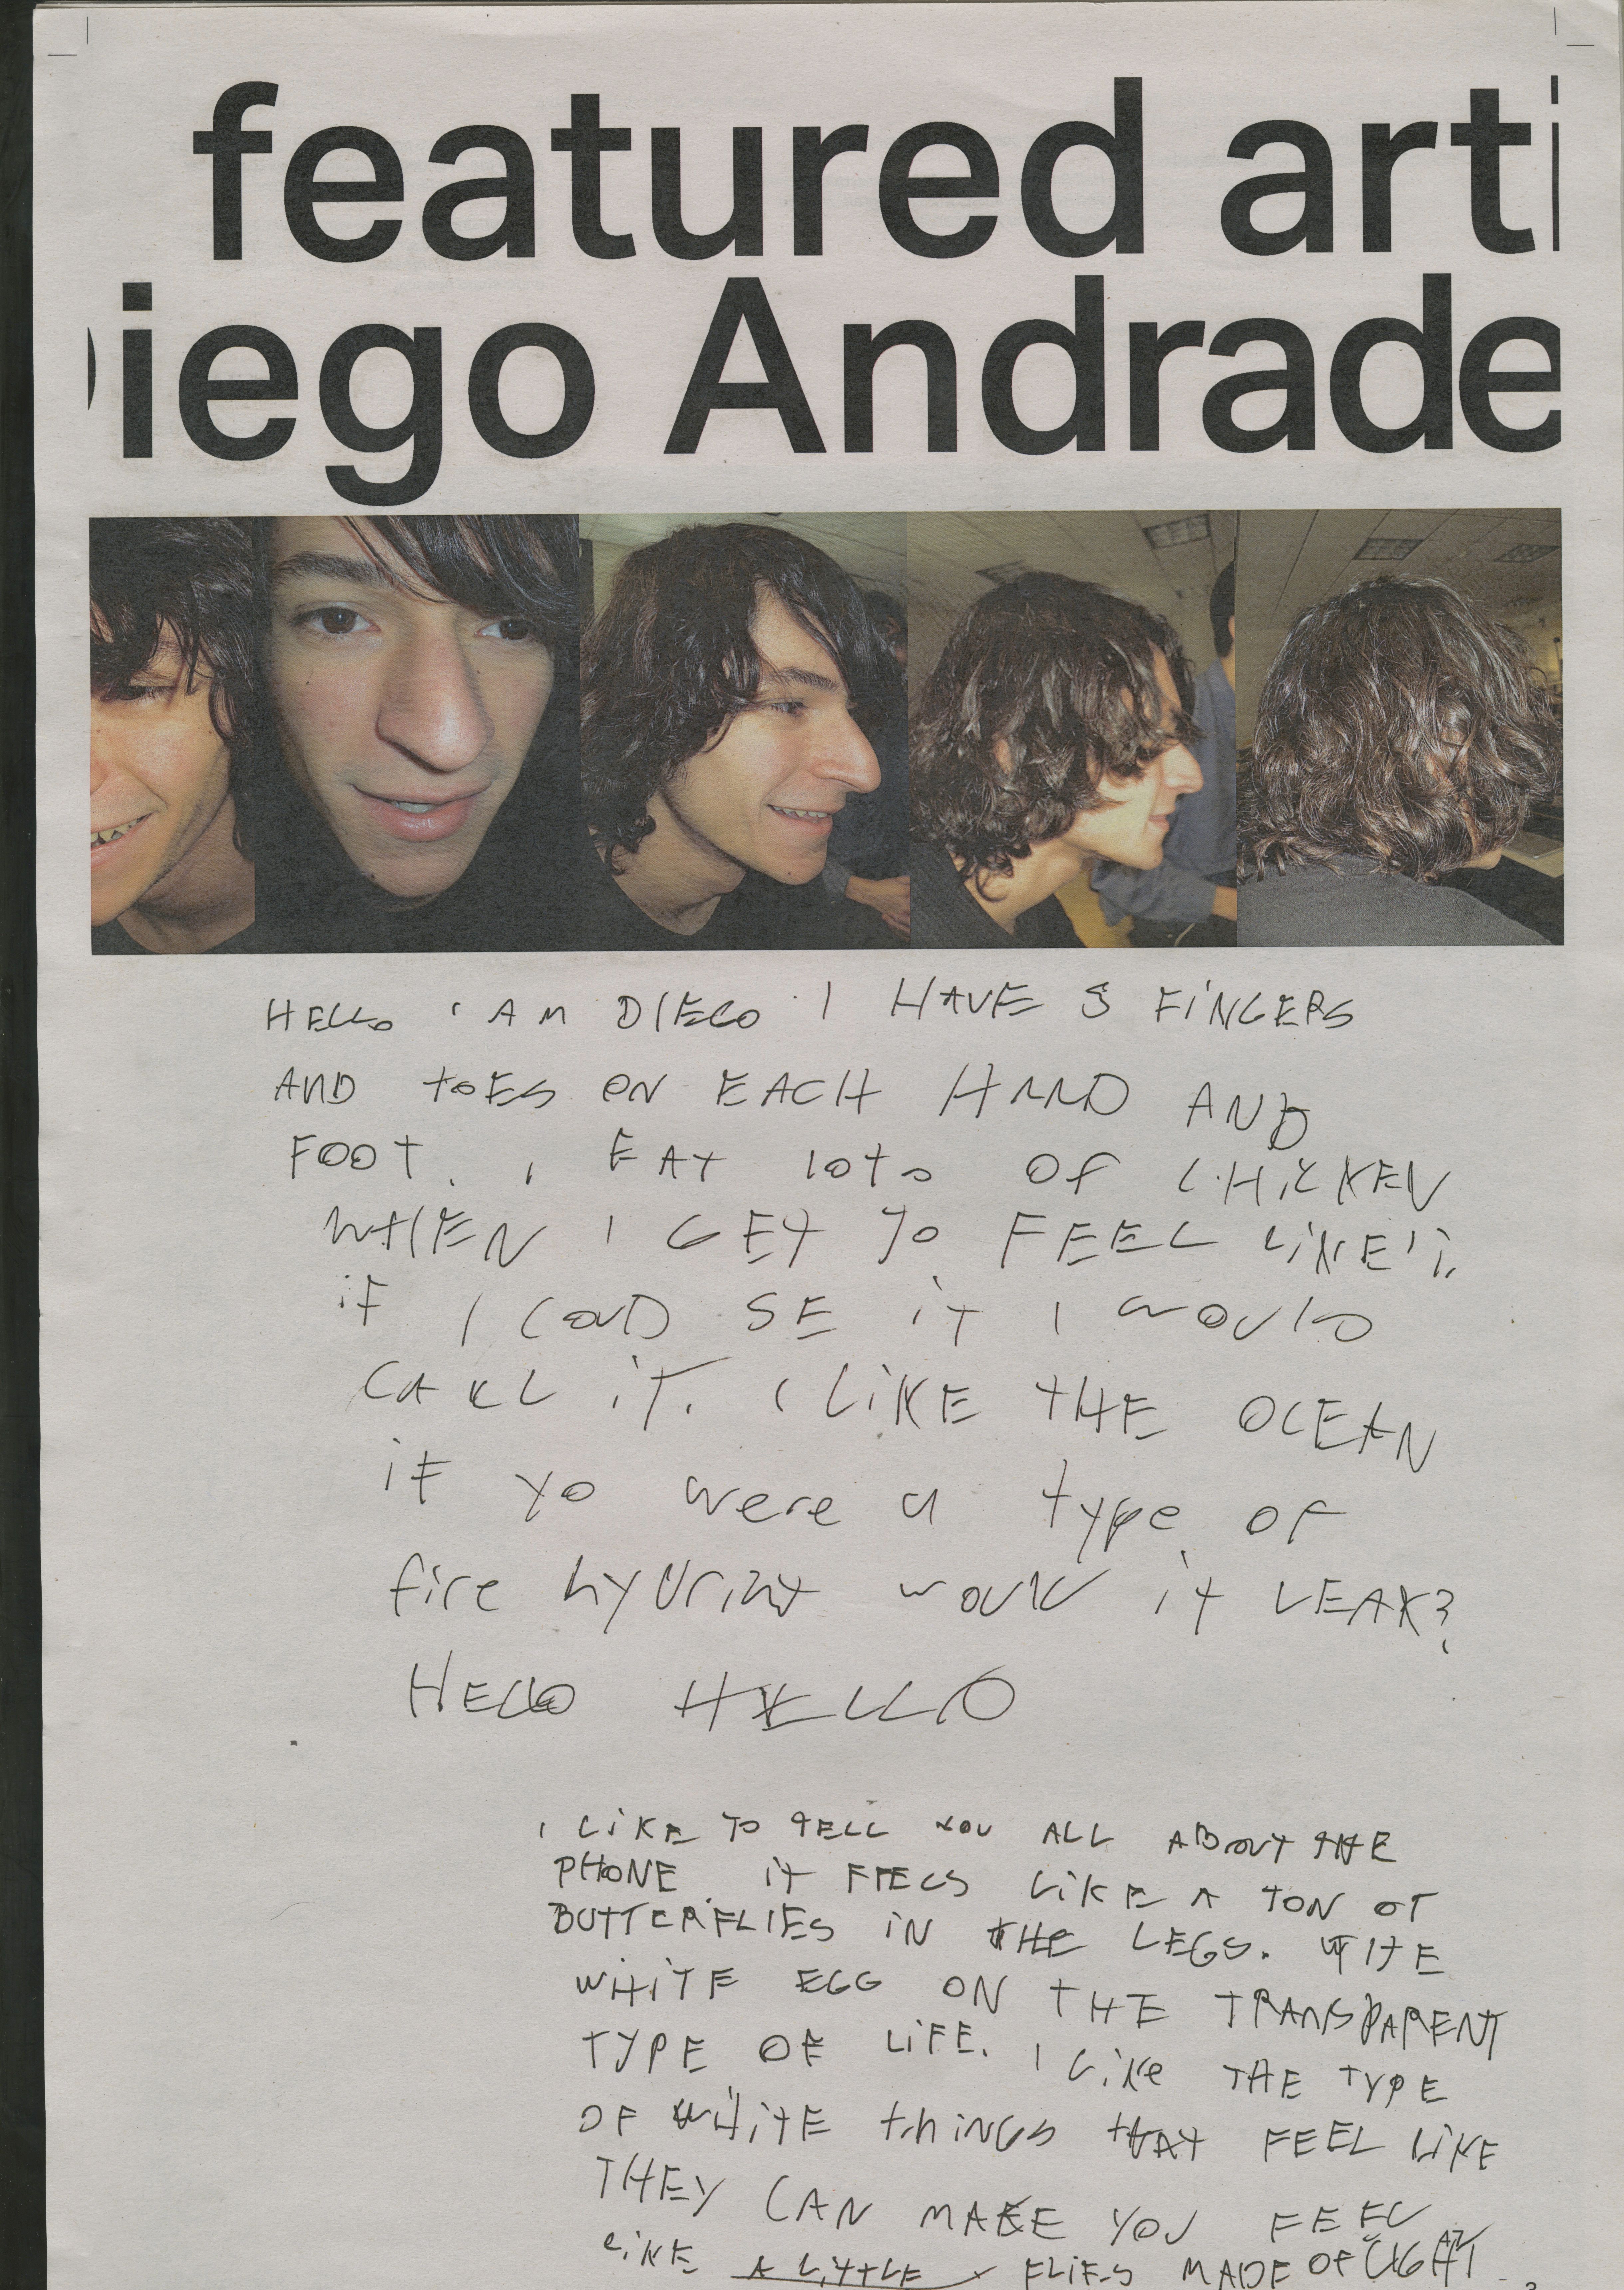 featured arti
iego Andrade
HELLO I AM DIEGO I HAVE 5 FINGERS
AND tOES ON EACH HAND AND
FOOT. I EAT lOts OF CHICKEN
WHEN I GET TO FEEL LIKE
iF I COUD SE iT I WOULD
CALL iT. I LiKE THE OCEAN
if yo were a type of
fire hydrint would it LEAK?
HELLO HELLO
I LiKE TO TELL YOU ALL ABOUT THE
PHONE iT FEELS LiKE A TON OF
BUTTERFLIES iN THE LEGS. THE
WHiTE EGG ON THE TRANSPARENT
TYPE OF LiFE. I Like THE TYPE
OF WHiTE thiNGS tHAT FEEL LiKE
THEY CAN MAKE YOU FEEL
LiKE A LiTTLE FLIES MADE OF LIGHT